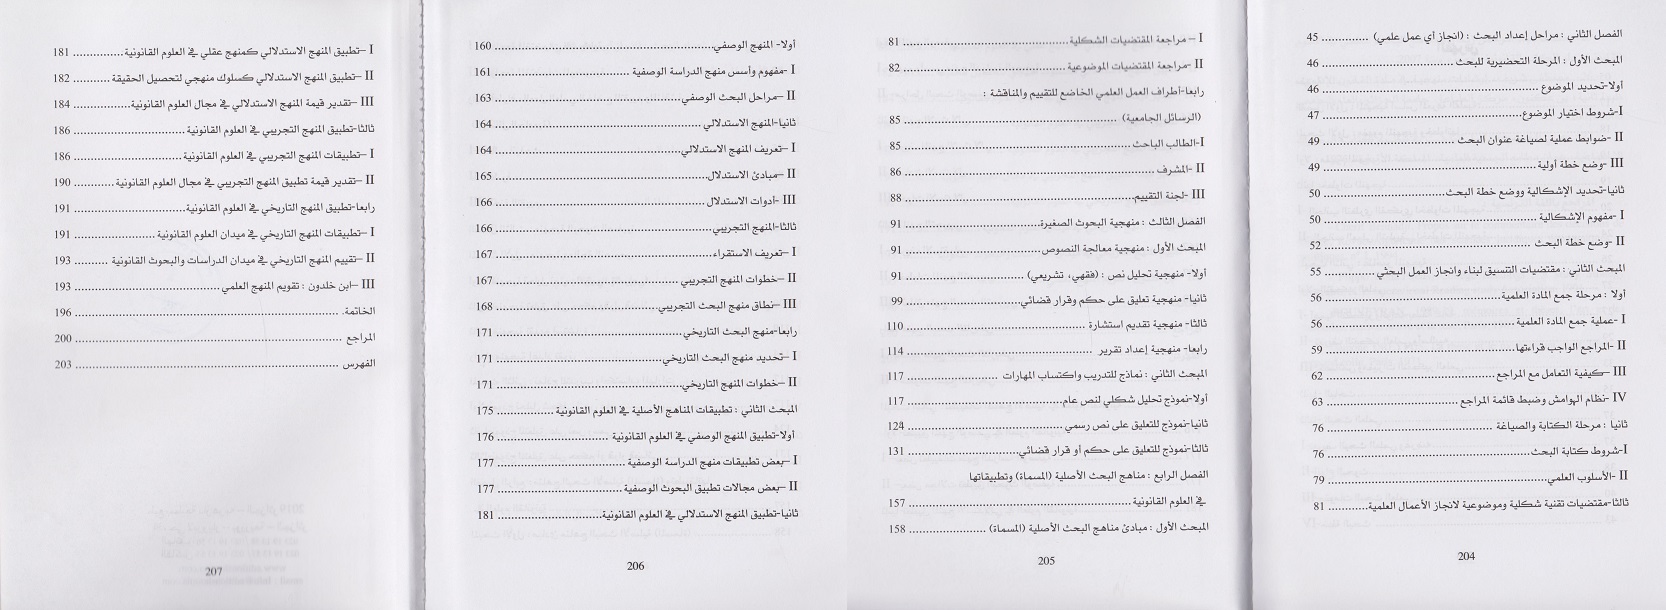 الفصل الثاني : مراحل إعداد البحث : (انجاز أي عمل علمي) ............ 45
المبحث الأول : المرحلة التحضيرية للبحث ............ 46
أولا-تحديد الموضوع ............ 46
I-شروط اختيار الموضوع ............ 47
II -ضوابط عملية لصياغة عنوان البحث ............ 49
III -وضع خطة أولية ............ 49
ثانيا-تحديد الإشكالية ووضع خطة البحث ............ 50
I -مفهوم الإشكالية ............ 50
II -وضع خطة البحث ............ 52
المبحث الثاني : مقتضيات التنسيق لبناء وانجاز العمل البحثي ............ 55
أولا : مرحلة جمع المادة العلمية ............ 56
I -عملية جمع المادة العلمية ............ 56
II -المراجع الواجب قراءتها ............ 59
III -كيفية التعامل مع المراجع ............ 62
IV -نظام الهوامش وضبط قائمة المراجع ............ 63
ثانيا : مرحلة الكتابة والصياغة ............ 76
I-شروط كتابة البحث ............ 76
II -الأسلوب العلمي ............ 79
ثالثا-مقتضيات تقنية شكلية وموضوعية لانجاز الأعمال العلمية ............ 81
204
I - مراجعة المقتضيات الشكلية ............ 81
II -مراجعة المقتضيات الموضوعية ............ 82
رابعا-أطراف العمل العلمي الخاضع للتقييم والمناقشة :
(الرسائل الجامعية) ............ 85
I-الطالب الباحث ............ 85
II -المشرف ............ 86
III -لجنة التقييم ............ 88
الفصل الثالث : منهجية البحوث الصغيرة ............ 91
المبحث الأول : منهجية معالجة النصوص ............ 91
أولا- منهجية تحليل نص : (فقهي، تشريعي) ............ 91
ثانيا- منهجية تعليق على حكم وقرار قضائي ............ 99
ثالثا- منهجية تقديم استشارة ............ 110
رابعا- منهجية إعداد تقرير ............ 114
المبحث الثاني : نماذج للتدريب واكتساب المهارات ............ 117
أولا-نموذج تحليل شكلي لنص عام ............ 117
ثانيا-نموذج للتعليق على نص رسمي ............ 124
ثالثا-نموذج للتعليق على حكم أو قرار قضائي ............ 131
الفصل الرابع : مناهج البحث الأصلية (المسماة) وتطبيقاتها
في العلوم القانونية ............ 157
المبحث الأول : مبادئ مناهج البحث الأصلية (المسماة) ............ 158
205
أولا- المنهج الوصفي ............ 160
I -مفهوم وأسس منهج الدراسة الوصفية ............ 161
II -مراحل البحث الوصفي ............ 163
ثانيا-المنهج الاستدلالي ............ 164
I -تعريف المنهج الاستدلالي ............ 164
II -مبادئ الاستدلال ............ 165
III -أدوات الاستدلال ............ 166
ثالثا-المنهج التجريبي ............ 166
I -تعريف الاستقراء ............ 167
II -خطوات المنهج التجريبي ............ 167
III -نطاق منهج البحث التجريبي ............ 168
رابعا-منهج البحث التاريخي ............ 171
I -تحديد منهج البحث التاريخي ............ 171
II -خطوات المنهج التاريخي ............ 171
المبحث الثاني : تطبيقات المناهج الأصلية في العلوم القانونية ............ 175
أولا-تطبيق المنهج الوصفي في العلوم القانونية ............ 176
I -بعض تطبيقات منهج الدراسة الوصفية ............ 177
II -بعض مجالات تطبيق البحوث الوصفية ............ 177
ثانيا-تطبيق المنهج الاستدلالي في العلوم القانونية ............ 181
206
I -تطبيق المنهج الاستدلالي كمنهج عقلي في العلوم القانونية ............ 181
II -تطبيق المنهج الاستدلالي كسلوك منهجي لتحصيل الحقيقة ............ 182
III -تقدير قيمة المنهج الاستدلالي في مجال العلوم القانونية ............ 184
ثالثا-تطبيق المنهج التجريبي في العلوم القانونية ............ 186
I -تطبيقات المنهج التجريبي في العلوم القانونية ............ 186
II -تقدير قيمة تطبيق المنهج التجريبي في مجال العلوم القانونية ............ 190
رابعا-تطبيق المنهج التاريخي في العلوم القانونية ............ 191
I -تطبيقات المنهج التاريخي في ميدان العلوم القانونية ............ 191
II -تقييم المنهج التاريخي في ميدان الدراسات والبحوث القانونية ............ 193
III -ابن خلدون : تقويم المنهج العلمي ............ 193
الخاتمة ............ 196
المراجع ............ 200
الفهرس ............ 203
207